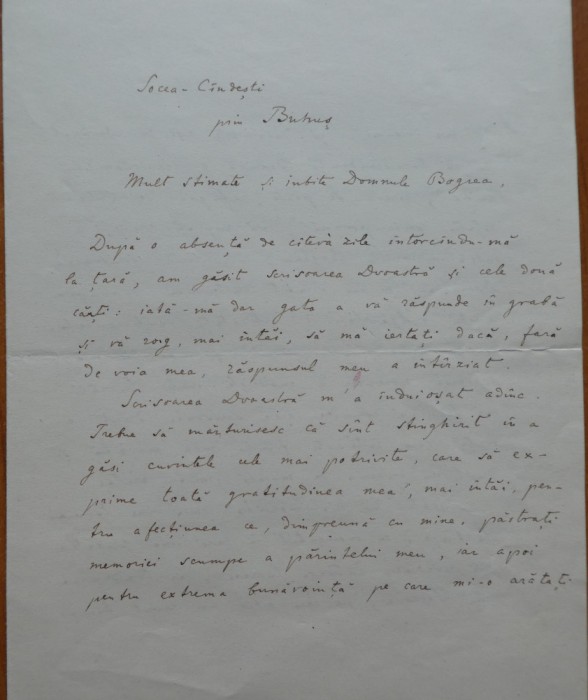 Socea-Cîndești
prin Buhuș
Mult stimate și iubite Domnule Bogrea,
După o absență de cîteva zile întorcîndu-mă
la țară, am găsit scrisoarea Dvoastră și cele două
cărți: iată-mă dar gata a vă răspunde în grabă
și vă rog, mai întăi, să mă iertați dacă, fără
de voia mea, răspunsul meu a întîrziat.
Scrisoarea Dvoastră m'a înduioșat adînc.
Trebue să mărturisesc că sînt stingherit în a
găsi cuvintele cele mai potrivite, care să ex-
prime toată gratitudinea mea, mai întăi, pen-
tru afecțiunea ce, dimpreună cu mine, păstrați
memoriei scumpe a părintelui meu, iar apoi
pentru extrema bunăvoință pe care mi-o arătați